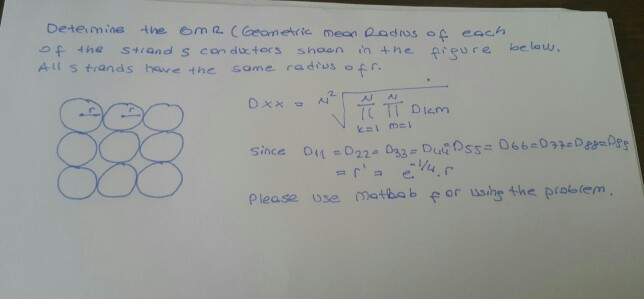 Determine the GMR (Geometric mean Radius of each
of the strand s conductors shown in the figure below.
All strands have the same radius of r.
r r
Dxx = N² √ N π k=1 N π m=1 Dkm
Since D11 = D22 = D33 = D44 = D55 = D66 = D77 = D88 = D99
= r' = e^-1/4 . r
Please use Matlab for using the problem.